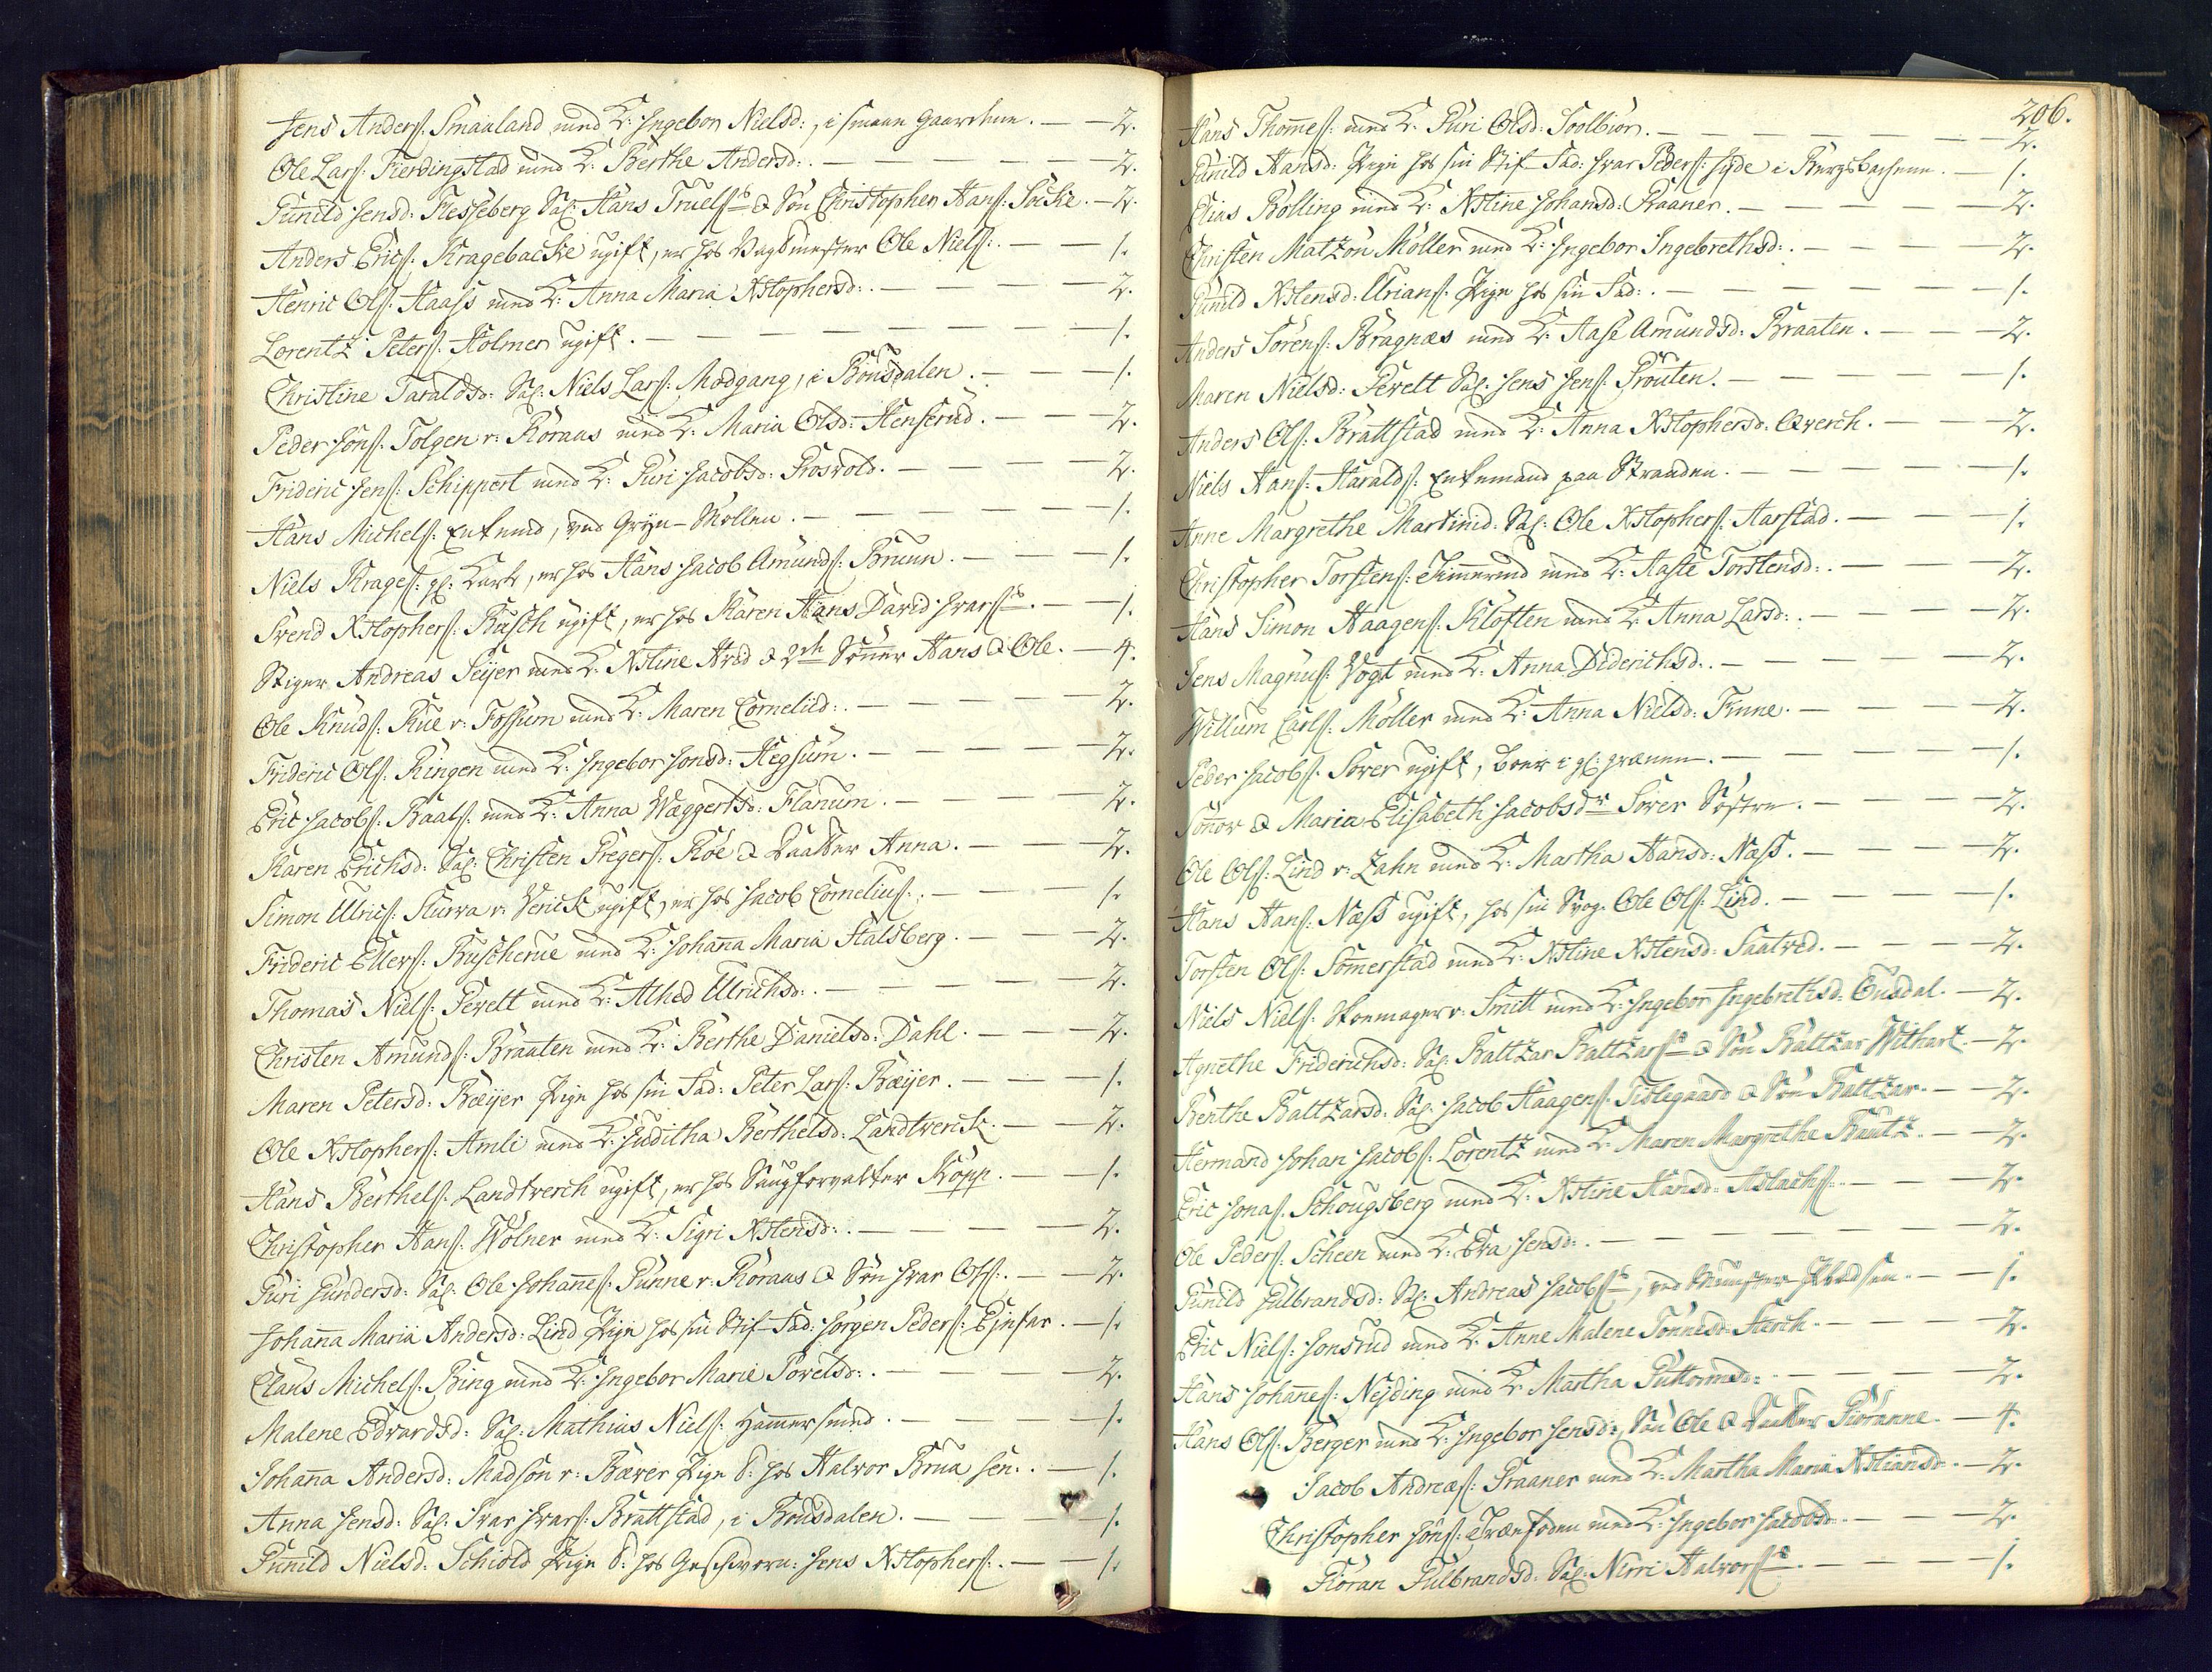 Jens Anders: Smaaland med K: Ingebor Nielsd:, i smaae Gaardene. — — 2.
Ole Lars: Fierdingstad med K: Berthe Andersd: . — — — — — 2.
Gunild Jensd: Flesseberg Sal: Hans Truelss & Søn Christopher Hans: Socke. — 2.
Anders Erics: Kragebacke ugift, er hos Vagtmester Ole Niels: . — — — 1.
Henric Ols: Haass med K: Anna Maria Xstophersd: . — — — — 2.
Lorentz Peters: Holmer ugift. — — — — — — — 1.
Christine Taraldsd: Sal: Niels Lars: Modgang, i Bonsdalen. — — — 1.
Peder Jons: Tolgen v: Røraas med K: Maria Olsd: Henserud. — — — 2.
Frideric Jens: Schippert med K: Guri Jacobsd: Rosvold. — — — — 2.
Hans Michels: Enkemd, ved Gryn-Møllen. — — — — — 1.
Niels Krages: gl: Karl, er hos Hans Jacob Amunds: Bruun. — — — 1.
Svend Xstophers: Busch ugift, er hos Karen Hans David Ivarss. — — 1.
Stiger Andreas Seyer med K: Xstine Arvid & 2de Sønner Hans & Ole. — 4.
Ole Knuds: Rue v: Fossum med K: Maren Cornelid: . — — — — 2.
Frideric Ols: Ringen med K: Ingebor Jonsd: Hegsum. — — — — 2.
Eric Jacobs: Baals: med K: Anna Wæggertsd: Flanum. — — — — 2.
Karen Erichsd: Sal: Christen Gregers: Roe & Daatter Anna. — — — 2.
Simon Ulrics: Skurva v: Verick ugift, er hos Jacob Cornelius: . — — — 1.
Frideric Ellers: Buscherue med K: Johanna Maria Halsberg. — — — 2.
Thomas Niels: Pevelt med K: Alhed Ulrichsd: . — — — — — 2.
Christen Amunds: Braaten med K: Berthe Danielsd: Dahl. — — — 2.
Maren Petersd: Bæyer Pige hos sin Fad: Peter Lars: Bæyer. — — — 1.
Ole Xstophers: Amli med K: Juditha Berthelsd: Landtverck. — — — 2.
Hans Berthels: Landtverch ugift, er hos Saugforvalter Kopp. — — — 1.
Christopher Hans: Wolner med K: Sigri Xstensd: . — — — — 2.
Guri Gundersd: Sal: Ole Johannes: Gunne v: Røraas & Søn Ivar Ols: . — — 2.
Johanna Maria Andersd: Lind Pige hos sin Stif-Fad: Jørgen Peders: — 1.
Claus Michels: Bing med K: Ingebor Marie Povelsd: . — — — — 2.
Malene Edvardsd: Sal: Mathias Niels: Hammersmed. — — — — 1.
Johanna Andersd: Madsøn v: Bæver Pige d: hos Halvor Brua sen: . — — 1.
Anna Jensd: Sal: Ivar Ivars: Brattstad, i Bonsdalen. — — — — 1.
Gunild Nielsd: Schiold Pige d: hos Geschworn: Jens Xstophers: . — — 1.
206.
Hans Thommes: med K: Guri Olsd: Soolbiør. — — — — — 2.
Gunild Hansd: Pige hos sin Stif-Fad: Ivar Peders: Hyde i Bergsbachene. — 1.
Elias Bølling med K: Xstine Johansd: Raaner. — — — — — 2.
Christen Matzøn Møller med K: Ingebor Ingebrethsd: . — — — — 2.
Gunild Xstensd: Urians: Pige hos sin Fad: . — — — — — 1.
Anders Sørens: Bragnæs med K: Aase Amundsd: Braaten. — — — 2.
Maren Nielsd: Pevelt Sal: Jens Jens: Grouten. — — — — — 1.
Anders Ols: Brattstad med K: Anna Xstophersd: Qværch. — — — 2.
Niels Hans: Haralds: Enkemand paa Stranden. — — — — 1.
Anne Margrethe Martinid: Sal: Ole Xstophers: Aarstad. — — — — 1.
Christopher Torstens: Timmermd med K: Aaste Torstensd: . — — — 2.
Hans Simon Haagens: Kloften med K: Anna Larsd: . — — — — 2.
Jens Magnus: Vogt med K: Anna Diderichsd: . — — — — — 2.
Willum Carls: Møller med K: Anna Nielsd: Knne. — — — — 2.
Peder Jacobs: Sover ugift, boer i gl: grænnen. — — — — — 1.
Sønnov & Maria Elisabeth Jacobsdr Sover Søstre. — — — — 2.
Ole Ols: Lind v: Zahn med K: Martha Hansd: Næss. — — — — 2.
Hans Hans: Næss ugift, hos sin Svog: Ole Ols: Lind. — — — — 1.
Torsten Ols: Sommerstad med K: Xstine Xstensd: Saatved. — — — 2.
Niels Niels: Skoemager v: Smitt med K: Ingebor Ingebrethsd: Gusdal. — 2.
Agnethe Friderichsd: Sal: Baltzar Baltzarss & Søn Baltzar Withart. — 2.
Berthe Baltzarsd: Sal: Jacob Haagens: Tislegaard & Søn Baltzar. — — 2.
Hermand Johan Jacobs: Lorentz med K: Maren Margrethe Bautz. — — 2.
Eric Jonas: Schougsberg med K: Xstine Hansd: Aslachs: . — — — 2.
Ole Peders: Scheen med K: Eva Jensd: . — — — — — 2.
Gunild Gulbrandsd: Sal: Andreas Jacobss, ved — — 1.
Eric Niels: Jonsrud med K: Anne Malene Tønnesd: Starch. — — — 2.
Hans Johannes: Neyding med K: Martha Guttormsd: . — — — — 2.
Hans Ols: Berger med K: Ingebor Jensd:, Søn Ole & Daatter Giøranne. — 4.
Jacob Andreas: Graaner med K: Martha Maria Xstiansd: . — 2.
Christopher Jons: Trænfoden med K: Ingebor Jacobsd: . — — — 2.
Giøran Gulbrandsd: Sal: Nirri Halvorss. — — — — 1.